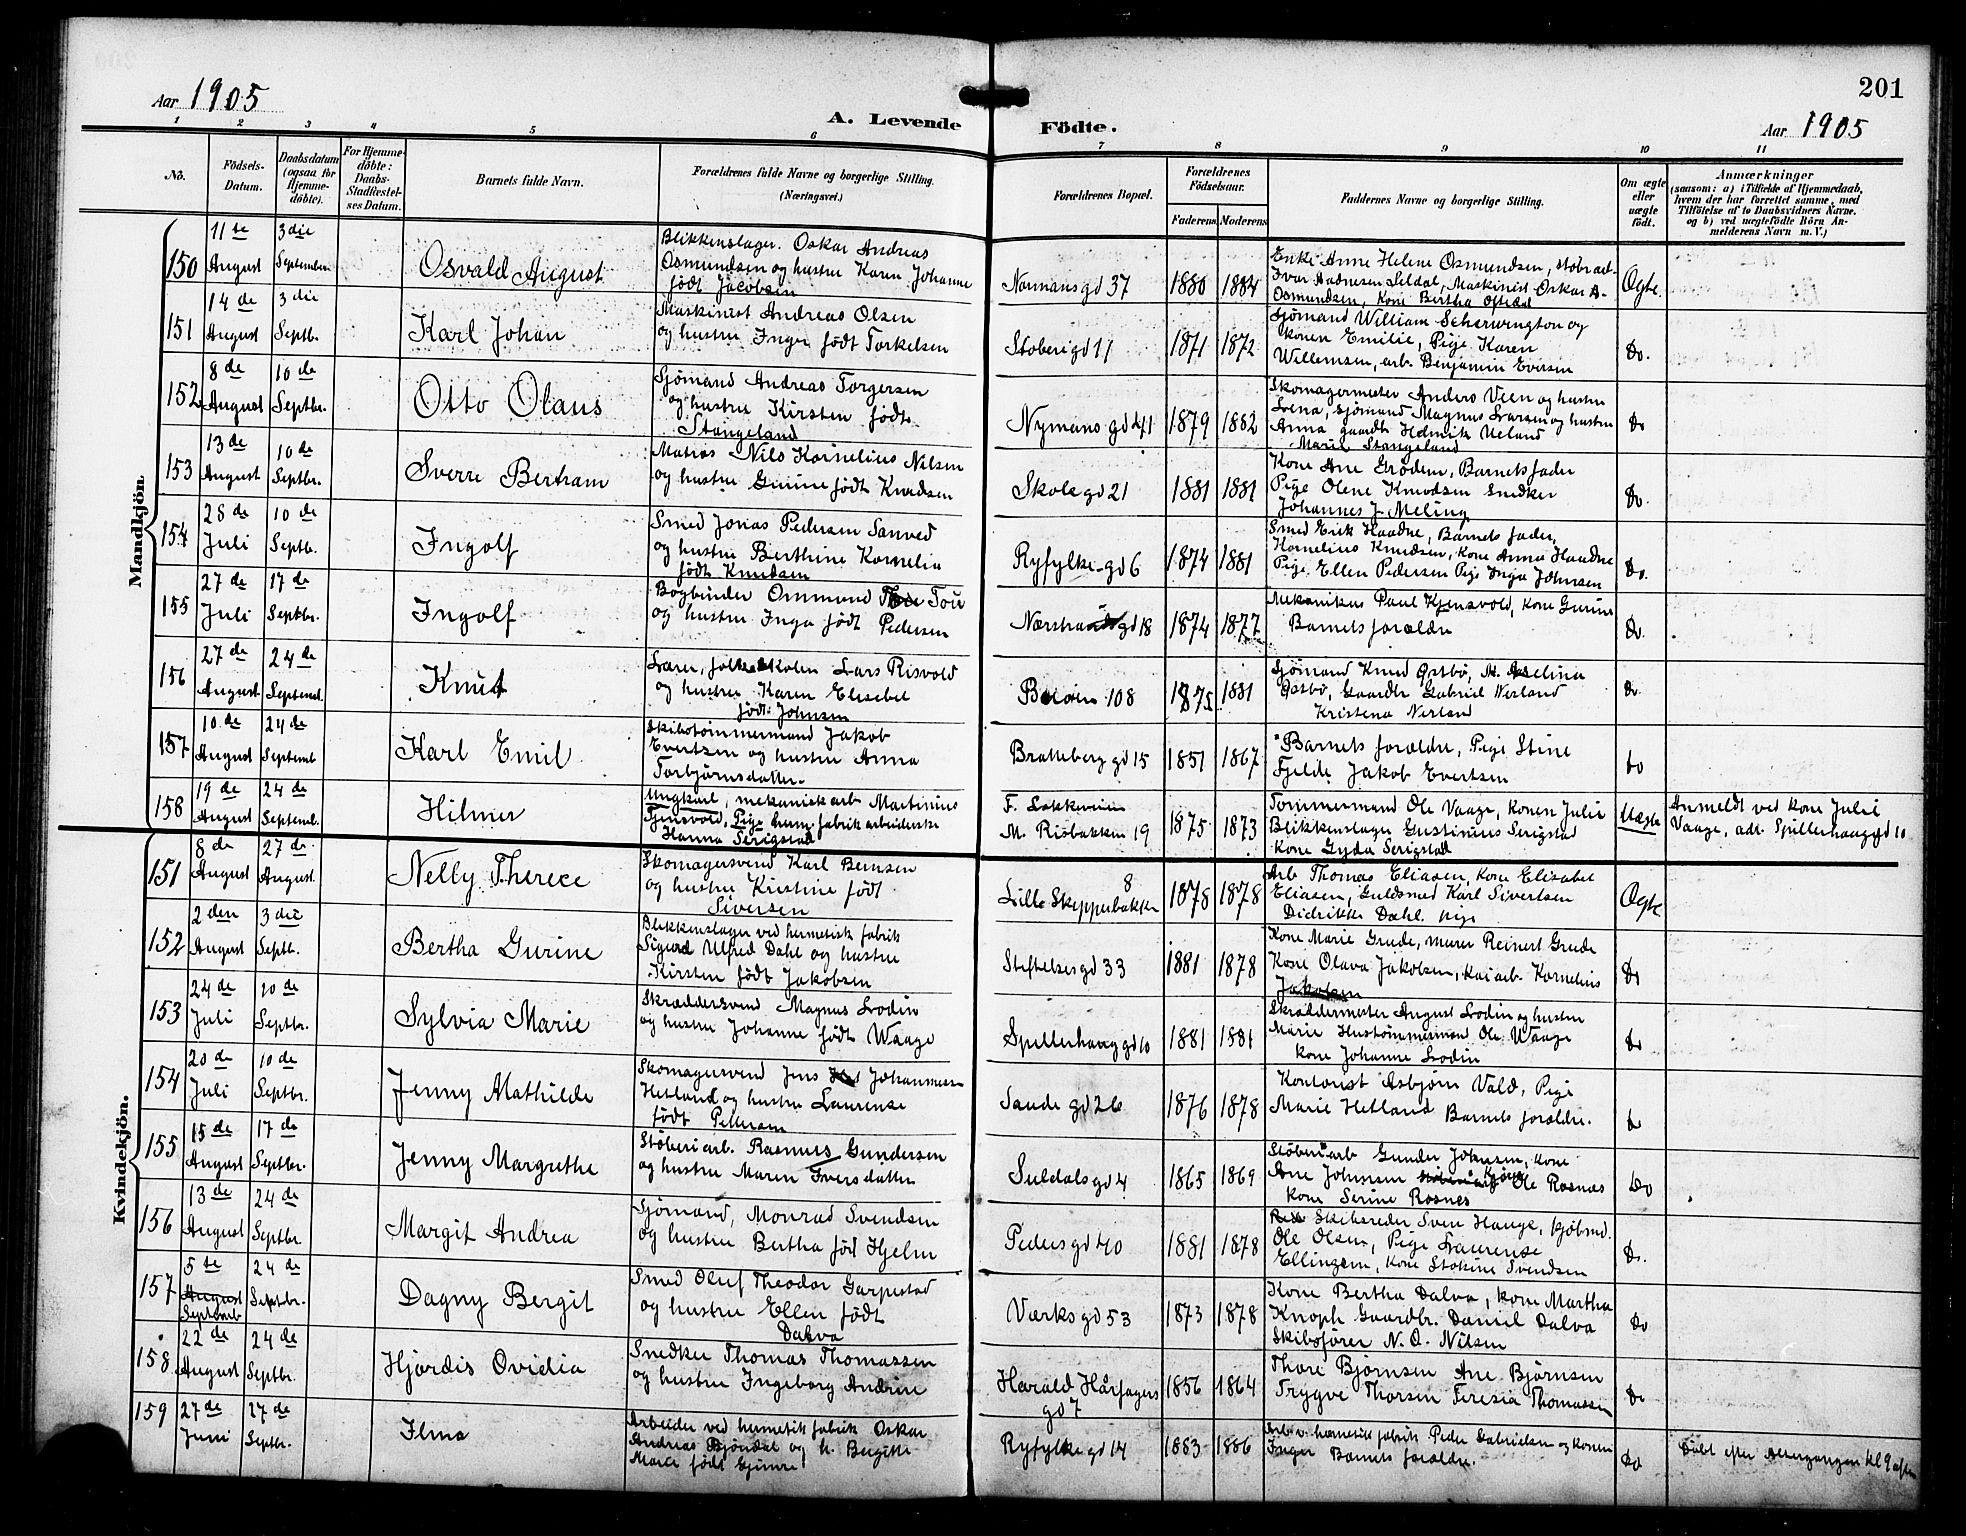 201
Aar 1905
A. Levende Födte.
Aar 1905
1 2 3 4 5 6 7 8 9 10 11
No.
Födsels-Datum.
Daabsdatum (ogsaa for Hjemme-döbte).
For Hjemme-döbte: Daabs-Stadfæstel-ses Datum.
Barnets fulde Navn.
Forældrenes fulde Navne og borgerlige Stilling. (Næringsvei.)
Forældrenes Bopæl.
Forældrenes Födselsaar.
Faderens Moderens
Faddernes Navne og borgerlige Stilling.
Om ægte eller uægte födt.
Anmærkninger
(saasom: a) i Tilfælde af Hjemmedaab, hvem der har forrettet samme, med Tilföielse af to Daabsvidners Navne. og b) ved uægtefödte Börn An-melderens Navn m. V.)
Mandkjön.
150
11te August
3die September
Osvald August
Blikkenslager. Oskar Andreas
Osmundsen og hustru Karen Johanne
født Jacobsen
Normansgd 37
1880 1884
Enke Anne Helene Osmundsen, støbrarb.
Ivar Aadnesen Seldal, Maskinist Oskar A.
Osmundsen, Kone Bertha Oftedal
Ægte.
151
14de August
3die Septbr.
Karl Johan
Maskinist Andreas Olsen
og hustru Inger født Torkelsen
Støberigd 11
1871 1872
Sjømand William Scherwington og
konen Emilie, Pige Karen
Willemsen, arb. Benjamin Eversen
Do.
152
8de August
10de Septbr.
Otto Olaus
Sjømand Andreas Torgersen
og hustru Kirsten født
Stangeland
Nymansgd 41
1879 1882
Skomagermester Anders Veen og hustru
Lena, Sjømand Magnus Larsen og hustru
Anna gaardb. Helmik Ueland
Marie Stangeland
Do
153
13de August
10de Septbr.
Sverre Bertram
Matros Nils Kornelius Nilsen
og hustru Gurine født Knudsen
Skolegd 21
1881 1881
Kone Ane Grødem, Barnets fader
Pige Olene Knudsen Snedker
Johannes J. Meling
Do.
154
28de Juli
10de Septb.
Ingolf
Smed Jonas Pedersen Sanved
og hustru Berthine Kornelia
født Knudsen
Ryfylke-gd 6
1874 1881
Smed Erik Haadne, Barnets fader,
Kornelius Knudsen, kone Anna Haadne
Pige Ellen Pedersen Pige Inga Johnsen
Do.
155
27de Juli
17de Septbr.
Ingolf
Bogbinder Ommund Tou
og hustru Inga født Pedersen
Nærstrandsgd 18
1874 1877
Mekanikus Paul Kjensvold, kone Gurine
Barnets forældre
Do.
156
27de August
24de Septemb.
Knut
Lærer, folkeskolen Lars Risvold
og hustru Karen Elisabet
født Johnsen
108
1875 1881
Sjømand Knud Østbø, M. Aselina
Østbø, Gaardbr Gabriel Nerland
Kristena Nerland
Do.
157
10de August
24de Septemb
Karl Emil
Skibstømmermand Jakob
Evertsen og hustru Anna
Torbjørnsdatter.
Bratteberggd 15
1851 1867
Barnets forældre, Pige Stine
Fjelde Jakob Evertsen
do
158
19de August
24de Septemb.
Hilmer
Ungkarl, mekanisk arb Martinius
Tjensvold, Pige herm. fabrik arbeiderske
Hanna Serigstad
F. Løkkeveien
M. Risbakken 19
1875 1873
Tømmermand Ole Vaage, Konen Julie
Blikkenslager Gustinius Serigstad
kone Gyda Serigstad
Uægte
Anmeldt ved kone Julie
Vaage, adr. Spilderhauggd 10
Kvindekjön.
151
8de August
27de August.
Nelly Therece
Skomagersvend Karl Berntsen
og hustru Kristine født
Siversen
Lille Skipperbakke 8
1878 1878
Arb Thomas Eliasen, kone Elisabet
Eliasen, Guldsmed Karl Sivertsen
Didrikke Dahl pige
Ægte
152
2den August
3die Septbr.
Bertha Gurine
Blikkenslager ved hermetisk fabrik
Sigurd Ulfred Dahl og hustru
Kirsten født Jakobsen
Stiftelsesgd 33
1881 1878
Kone Marie Grude, murer Reinert Grude
Kone Olava Jakobsen, kaiarb. Kornelius
Jakobsen
Do
153
24de Juli
10de Septbr.
Sylvia Marie
Skræddersvend Magnus Lodin
og hustru Johanne født Waage
Spilderhauggd 10
1881 1881
Skræddermester August Lodin og hustru
Marie Hustømmermand Ole Waage
Kone Johanne Lodin
Do
154
20de Juli
10de Septbr.
Jenny Mathilde
Skomagersvend Jens Johannesen
Hetland og hustru Laurense
født Pettersen
Sandegd 26
1876 1878
Kontorist Asbjørn Vald, Pige
Marie Hetland Barnets forældre.
Do
155
15de August
17de Septbr.
Jenny Margrethe
Støberiarb. Rasmus Gundersen
og hustru Maren Iversdatter
Suldalsgd 4
1865 1869
Støberiarb Gunder Johnsen, kone
Ane Johnsen Ole Rosnæs
kone Serine Rosnes
Do
156
13de August
24de Septbr.
Margit Andrea
Sjømand, Monrad Svendsen
og hustru Bertha fød Hjelm
Pedersgd 40
1881 1878
Skibsreder Sven Hauge, kjøbmd.
Ole Olsen, Pige Laurense
Ellingsen, kone Stokine Svendsen
Do.
157
5te August
Septemb
24de Septbr.
Dagny Bergit
Smed Oluf Theodor Garpestad
og hustru Ellen født
Dalva
Værksgd 53
1873 1878
Kone Bertha Dalva, kone Martha
Knoph Gaardbr. Daniel Dalva
Skibsfører N. O. Nilsen
Do
158
22de August
24de Septbr.
Hjørdis Ovidia
Snedker Thomas Thomassen
og hustru Ingeborg Andrine
Harald Hårfagers
gd 7
1856 1864
Thore Bjørnsen Ane Bjørnsen
Trygve Thorsen Teresia Thomassen
Do
159
27de Juni
17de Septbr.
Ilma
Arbeider ved hermetik fabrik Oskar
Andreas Bjøndal og h. Bergitte
Marie født Gjimre
Ryfylkegd 14
1883 1886
Arb v. hermetik fabrik Peder Gabrielsen og konen
Inger Barnets forældre.
Do
Døbt efter Altergangen kl 9 aften